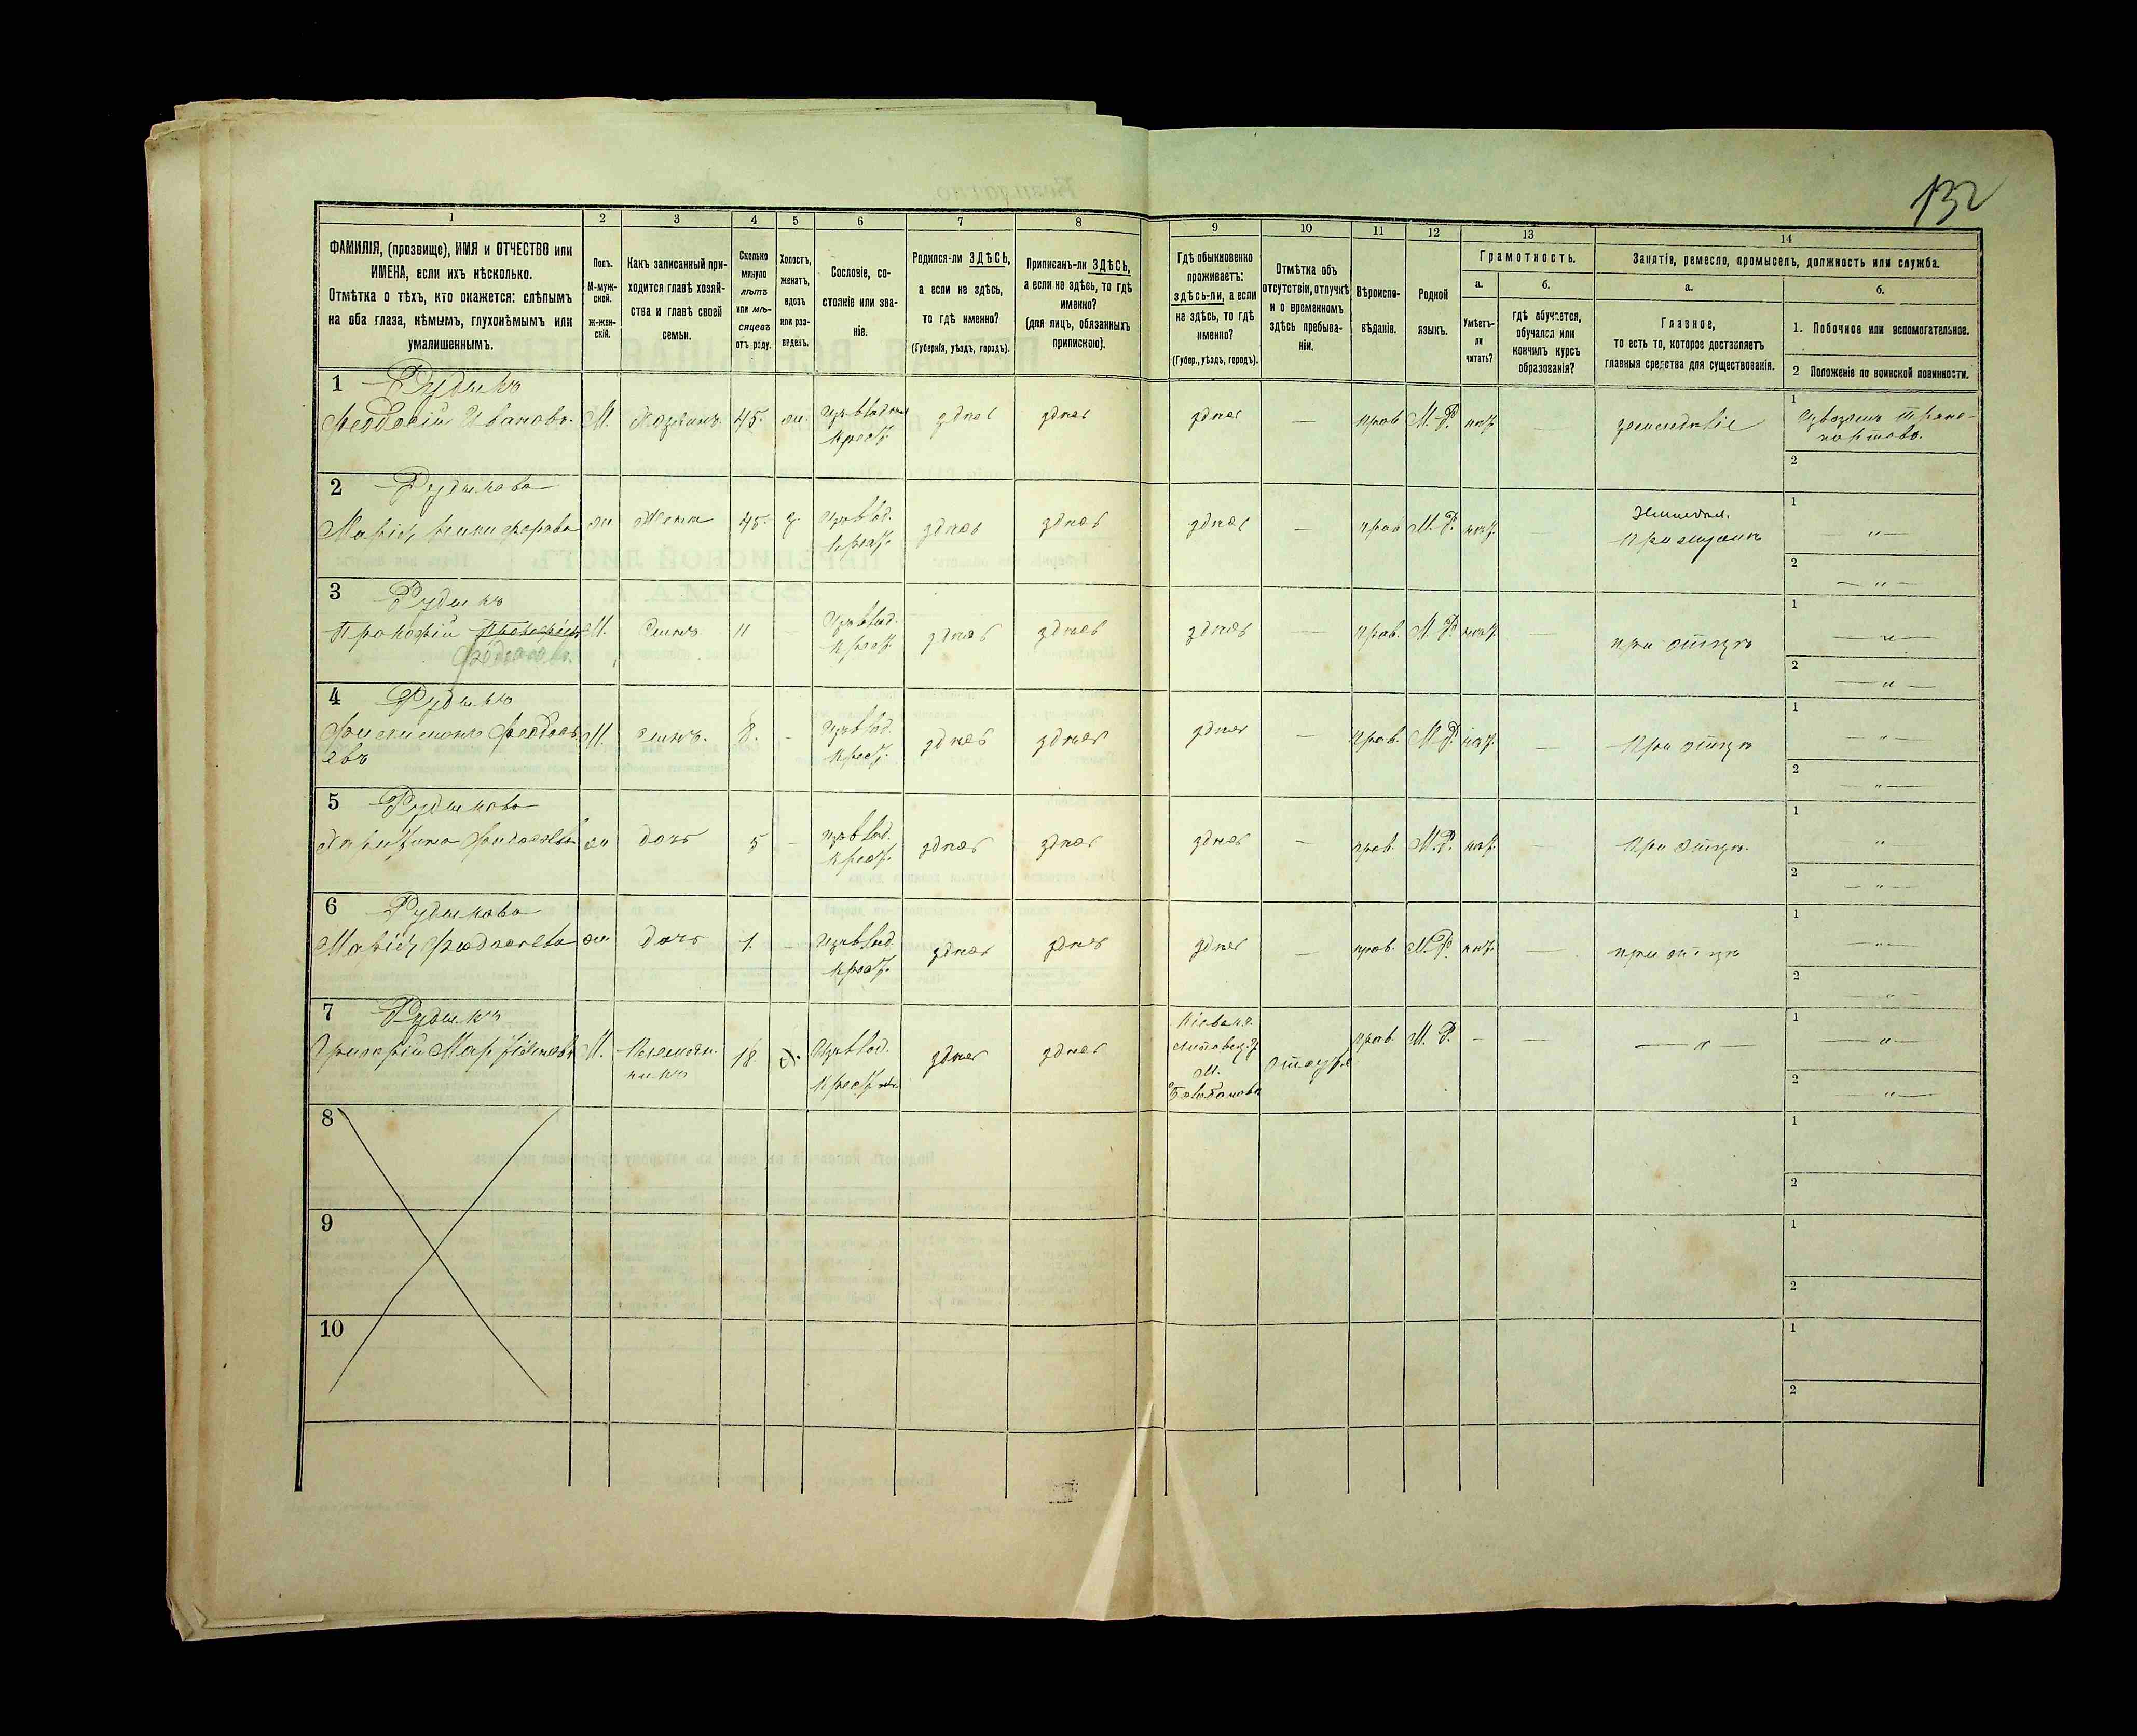 132
1 2 3 4 5 6 7 8 9 10 11 12 13 14
ФАМИЛІЯ, (прозвище), ИМЯ и ОТЧЕСТВО или
ИМЕНА, если ихъ нѣсколько.
Отмѣтка о тѣхъ, кто окажется: слѣпымъ
на оба глаза, нѣмымъ, глухонѣмымъ или
умалишеннымъ.
Полъ.
М-муж-
ской.
Ж-жен-
скій.
Какъ записанный при-
ходится главѣ хозяй-
ства и главѣ своей
семьи.
Сколько
минуло
лѣтъ
или мѣ-
сяцевъ
отъ роду.
Холостъ,
женатъ,
вдовъ
или раз-
веденъ.
Сословіе, со-
стояніе или зва-
ніе.
Родился-ли ЗДѢСЬ,
а если не здѣсь,
то гдѣ именно?
(Губернія, уѣздъ, городъ).
Приписанъ-ли ЗДѢСЬ,
а если не здѣсь, то гдѣ
именно?
(для лицъ, обязанныхъ
припискою).
Гдѣ обыкновенно
проживаетъ:
здѣсь-ли, а если
не здѣсь, то гдѣ
именно?
(Губер., уѣздъ, городъ).
Отмѣтка объ
отсутствіи, отлучкѣ
и о временномъ
здѣсь пребыва-
ніи.
Вѣроиспо-
вѣданіе.
Родной
языкъ.
Грамотность.
а.
Умѣетъ-
ли
читать?
б.
гдѣ обучается,
обучался или
кончилъ курсъ
образованія?
Занятіе, ремесло, промыселъ, должность или служба.
а.
Главное,
то есть то, которое доставляетъ
главныя средства для существованія.
б.
1. Побочное или вспомогательное.
2 Положеніе по воинской повинности.
1 Рудыкъ
Феодосій Ивановъ. М. Хозяинъ. 45. ж. крест. здѣсь здѣсь здѣсь — прав М. Р. нѣт. — земледѣліе
1
2
2 Рудыкова
Марія ж Жена 45. крест. здѣсь здѣсь здѣсь — прав М. Р. нѣт. — при мужѣ
1 — " —
2 — " —
3 Рудыкъ
Прокофій М. Сынъ 11 — крест. здѣсь здѣсь здѣсь — прав. М. Р. нѣт. — при отцѣ
1 — " —
2 — " —
4 Рудыкъ
Филимонъ Феодось
евъ М. сынъ. 8. - крест. здѣсь здѣсь здѣсь — прав. М. Р. нѣт. — При отцѣ
1 — " —
2 — " —
5 Рудыкова
ж дочь 5 — крест. здѣсь здѣсь здѣсь — прав. М. Р. нѣт. — При отцѣ.
1 — " —
2 — " —
6 Рудыкова
Марія Феодосіева ж дочь 1. — крест. здѣсь здѣсь здѣсь — прав. М. Р. нѣт. — при отцѣ
1 — " —
2 — " —
7 Рудыкъ
Григорій М. Племян-
никъ 18 крест здѣсь здѣсь прав. М. Р. - — — " —
1 — " —
2 — " —
8
1
2
9
1
2
10
1
2